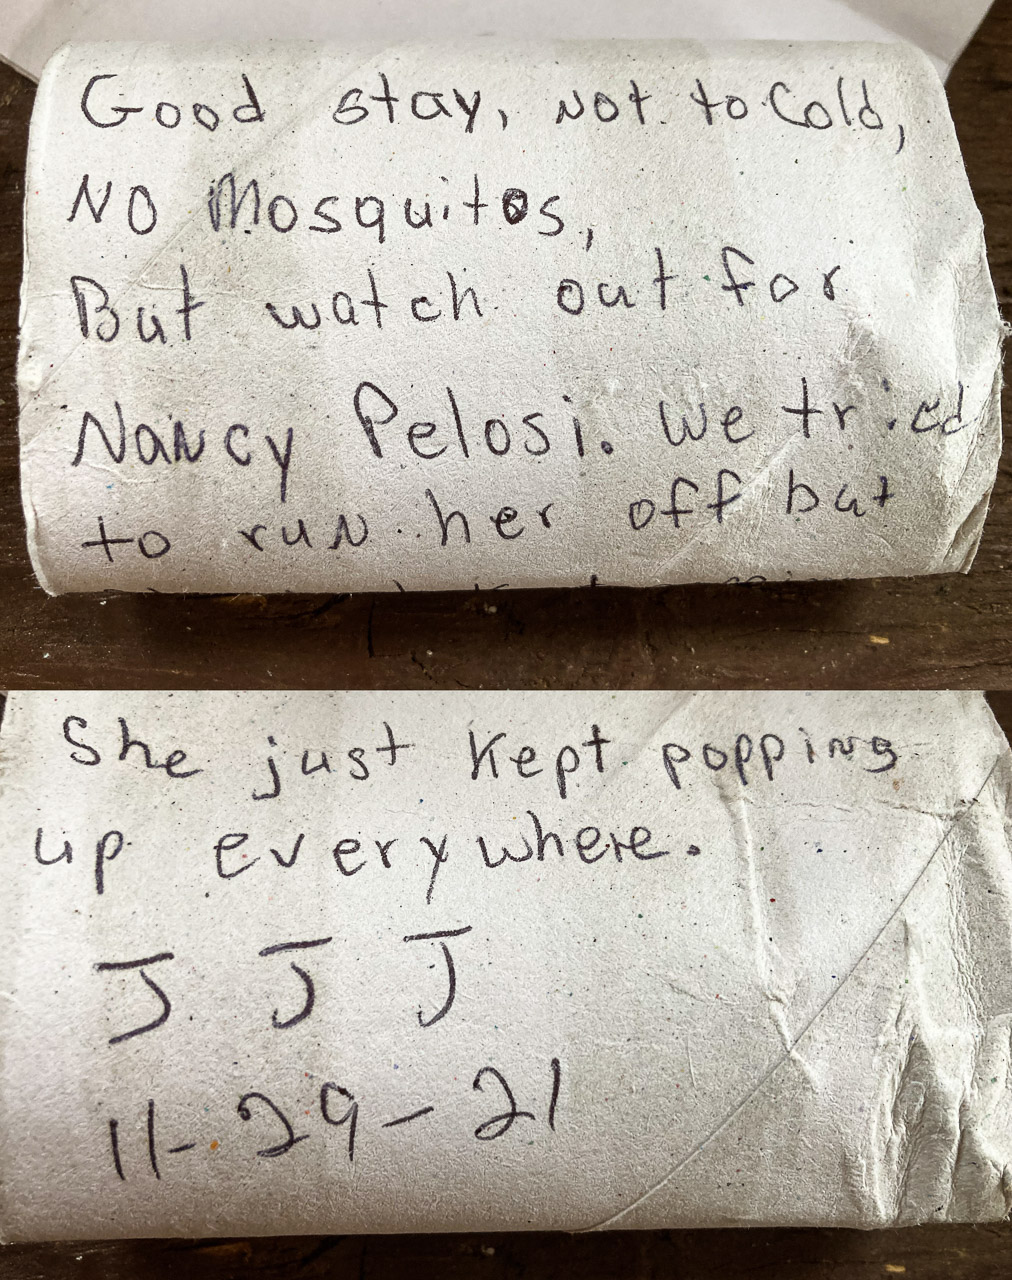 Good stay, Not to Cold,
NO Mosquitos,
But watch out for
Nancy Pelosi. We tried
to run her off but
She just kept popping
up everywhere.
J J J
11-29-21